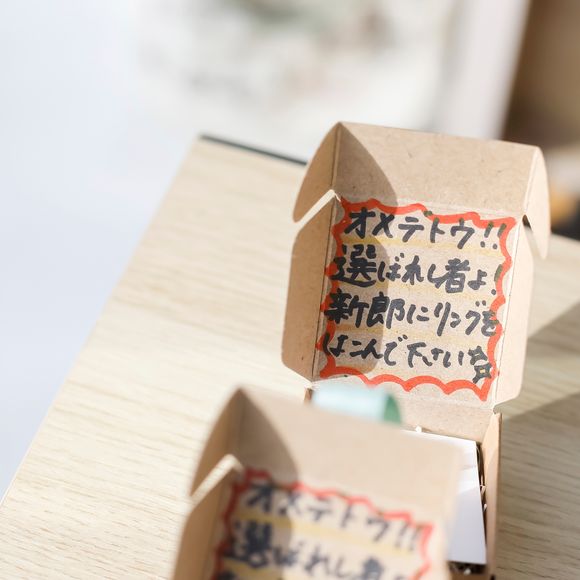 オメデトウ!!
選ばれし者よ!
新郎にリングを
はこんで下さい☆
オメデトウ!!
選ばれし者